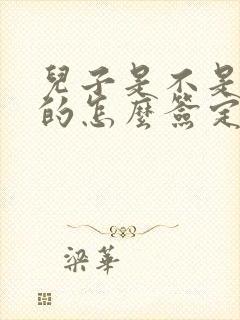 兒子是不是
的怎麼簽定
梁華